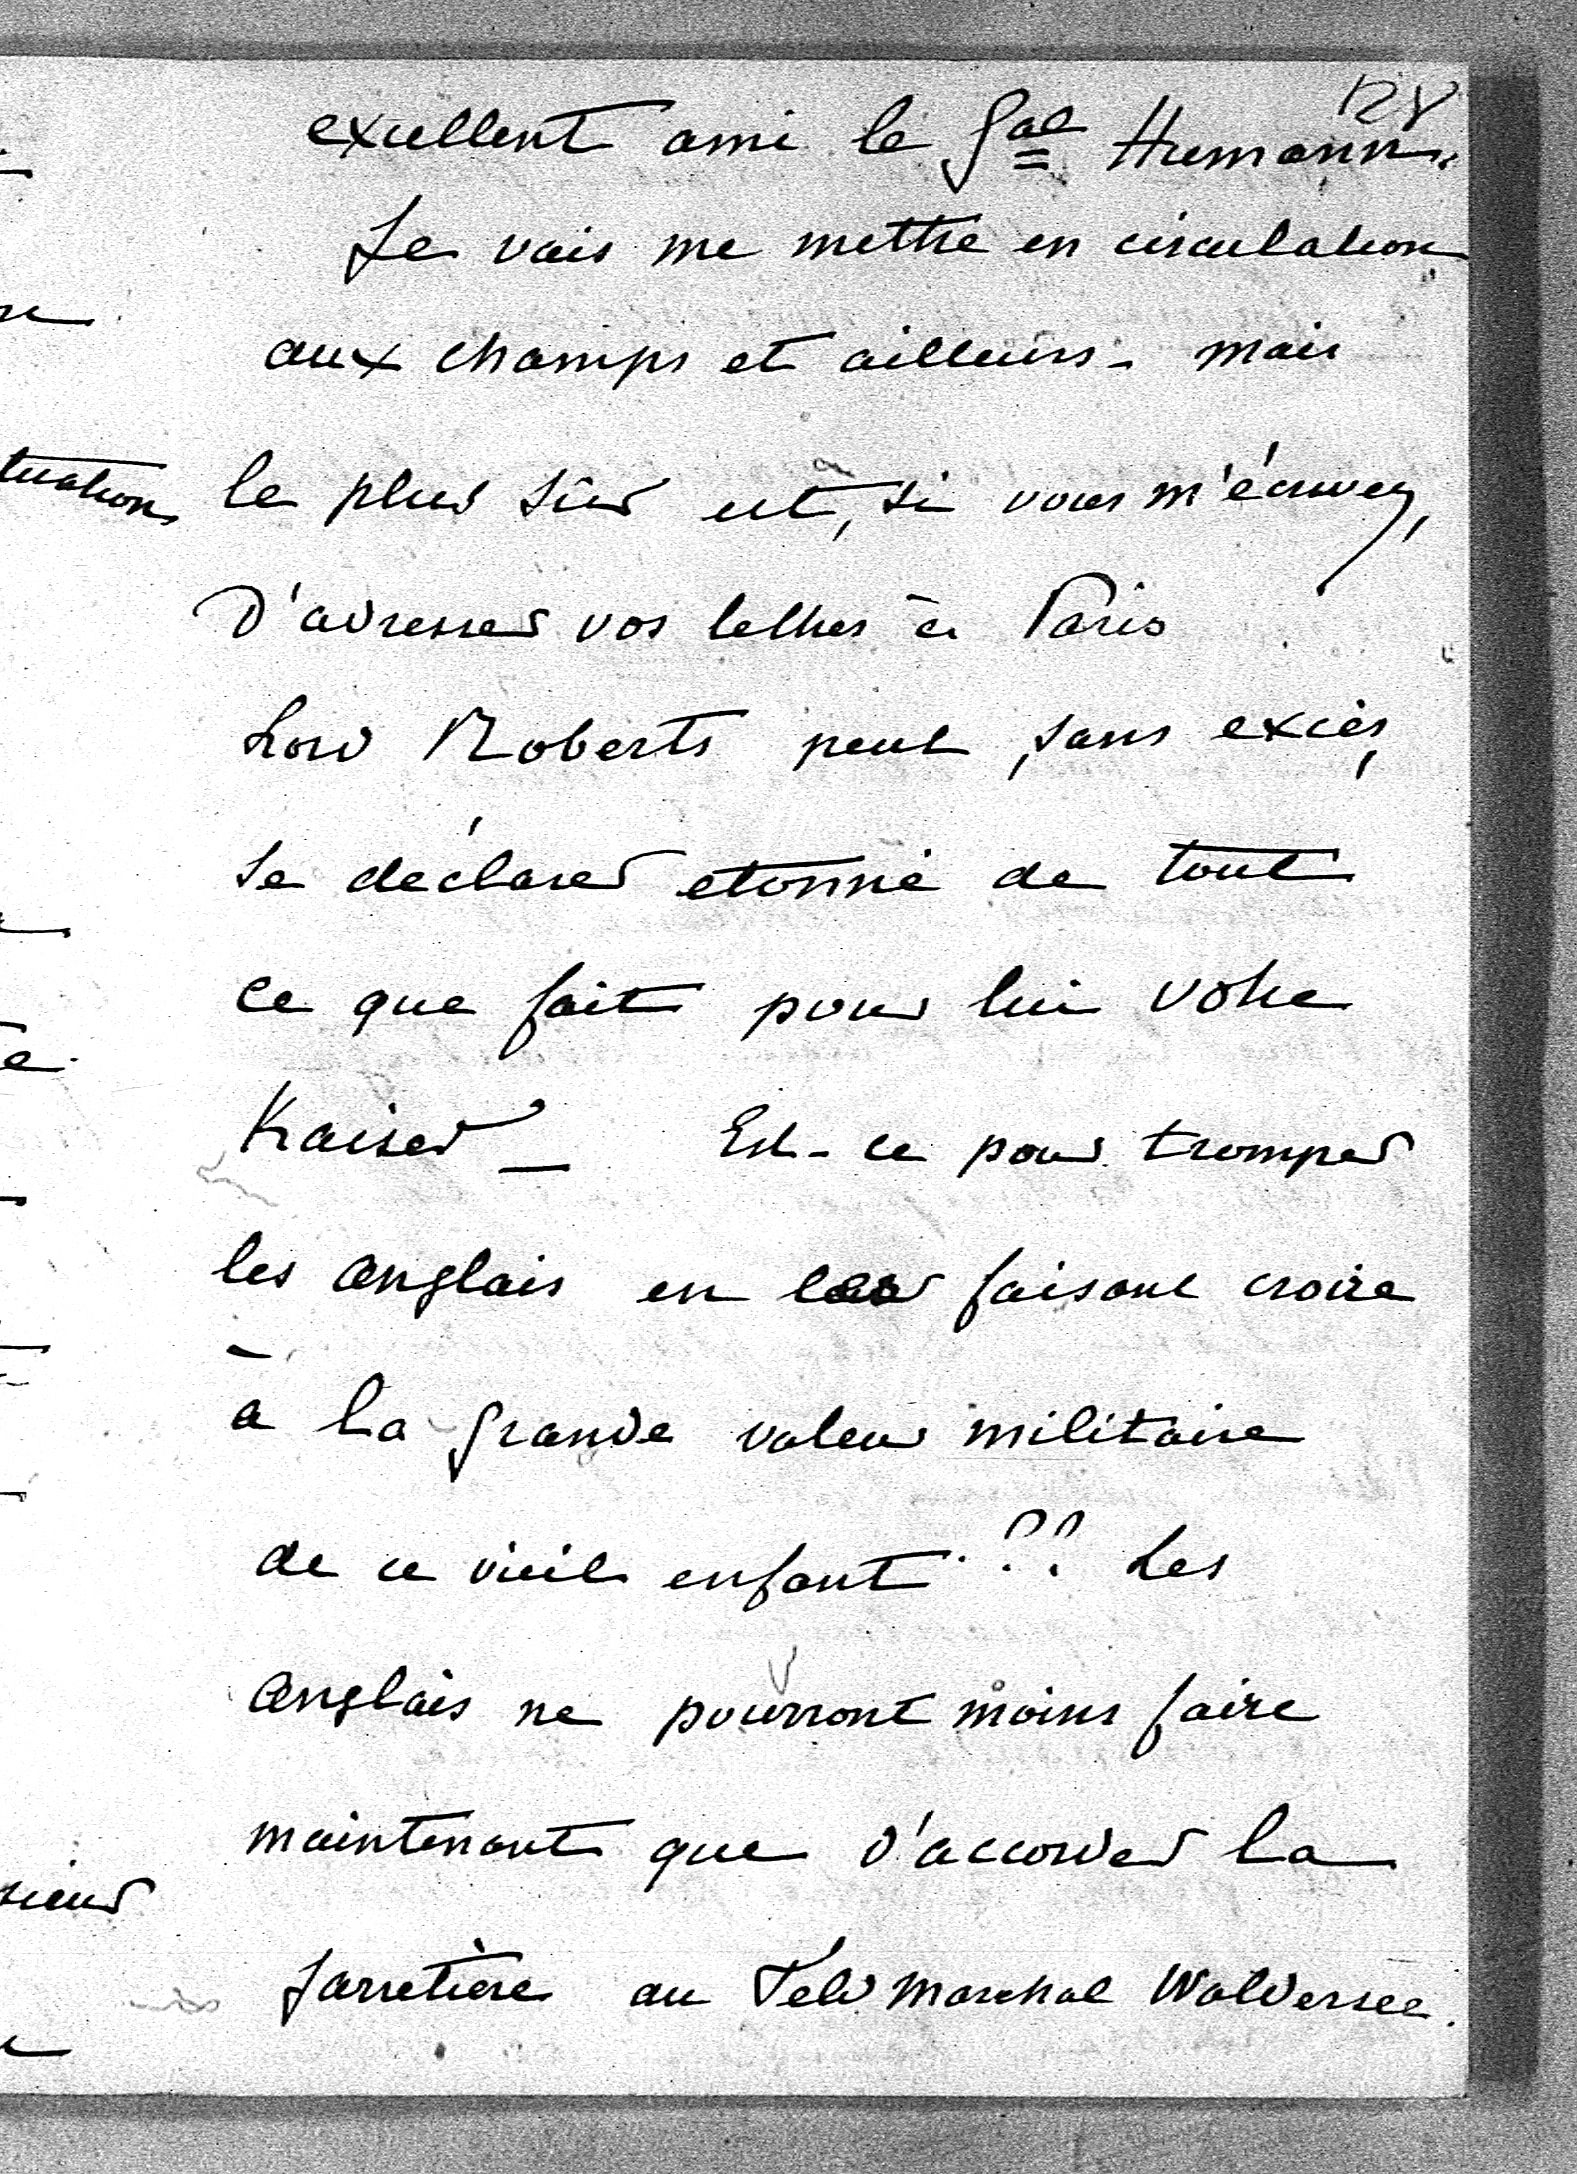 128
excellent ami le Gal Humann.
Je vais me mettre en circulation
aux champs et ailleurs - mais
tuation
le plus sûr est, si vous m'écrivez,
d'adresser vos lettres à Paris
Lord Roberts peut, sans excès,
se déclarer etonné de tout
ce que fait pour lui votre
Kaiser _ Est-ce pour tromper
les anglais en les faisant croire
à la grande valeur militaire
de ce vieil enfant ?? Les
anglais ne pourront moins faire
maintenant que d'accorder la
sieur
Jarretière au Feld Marchal Waldersee.